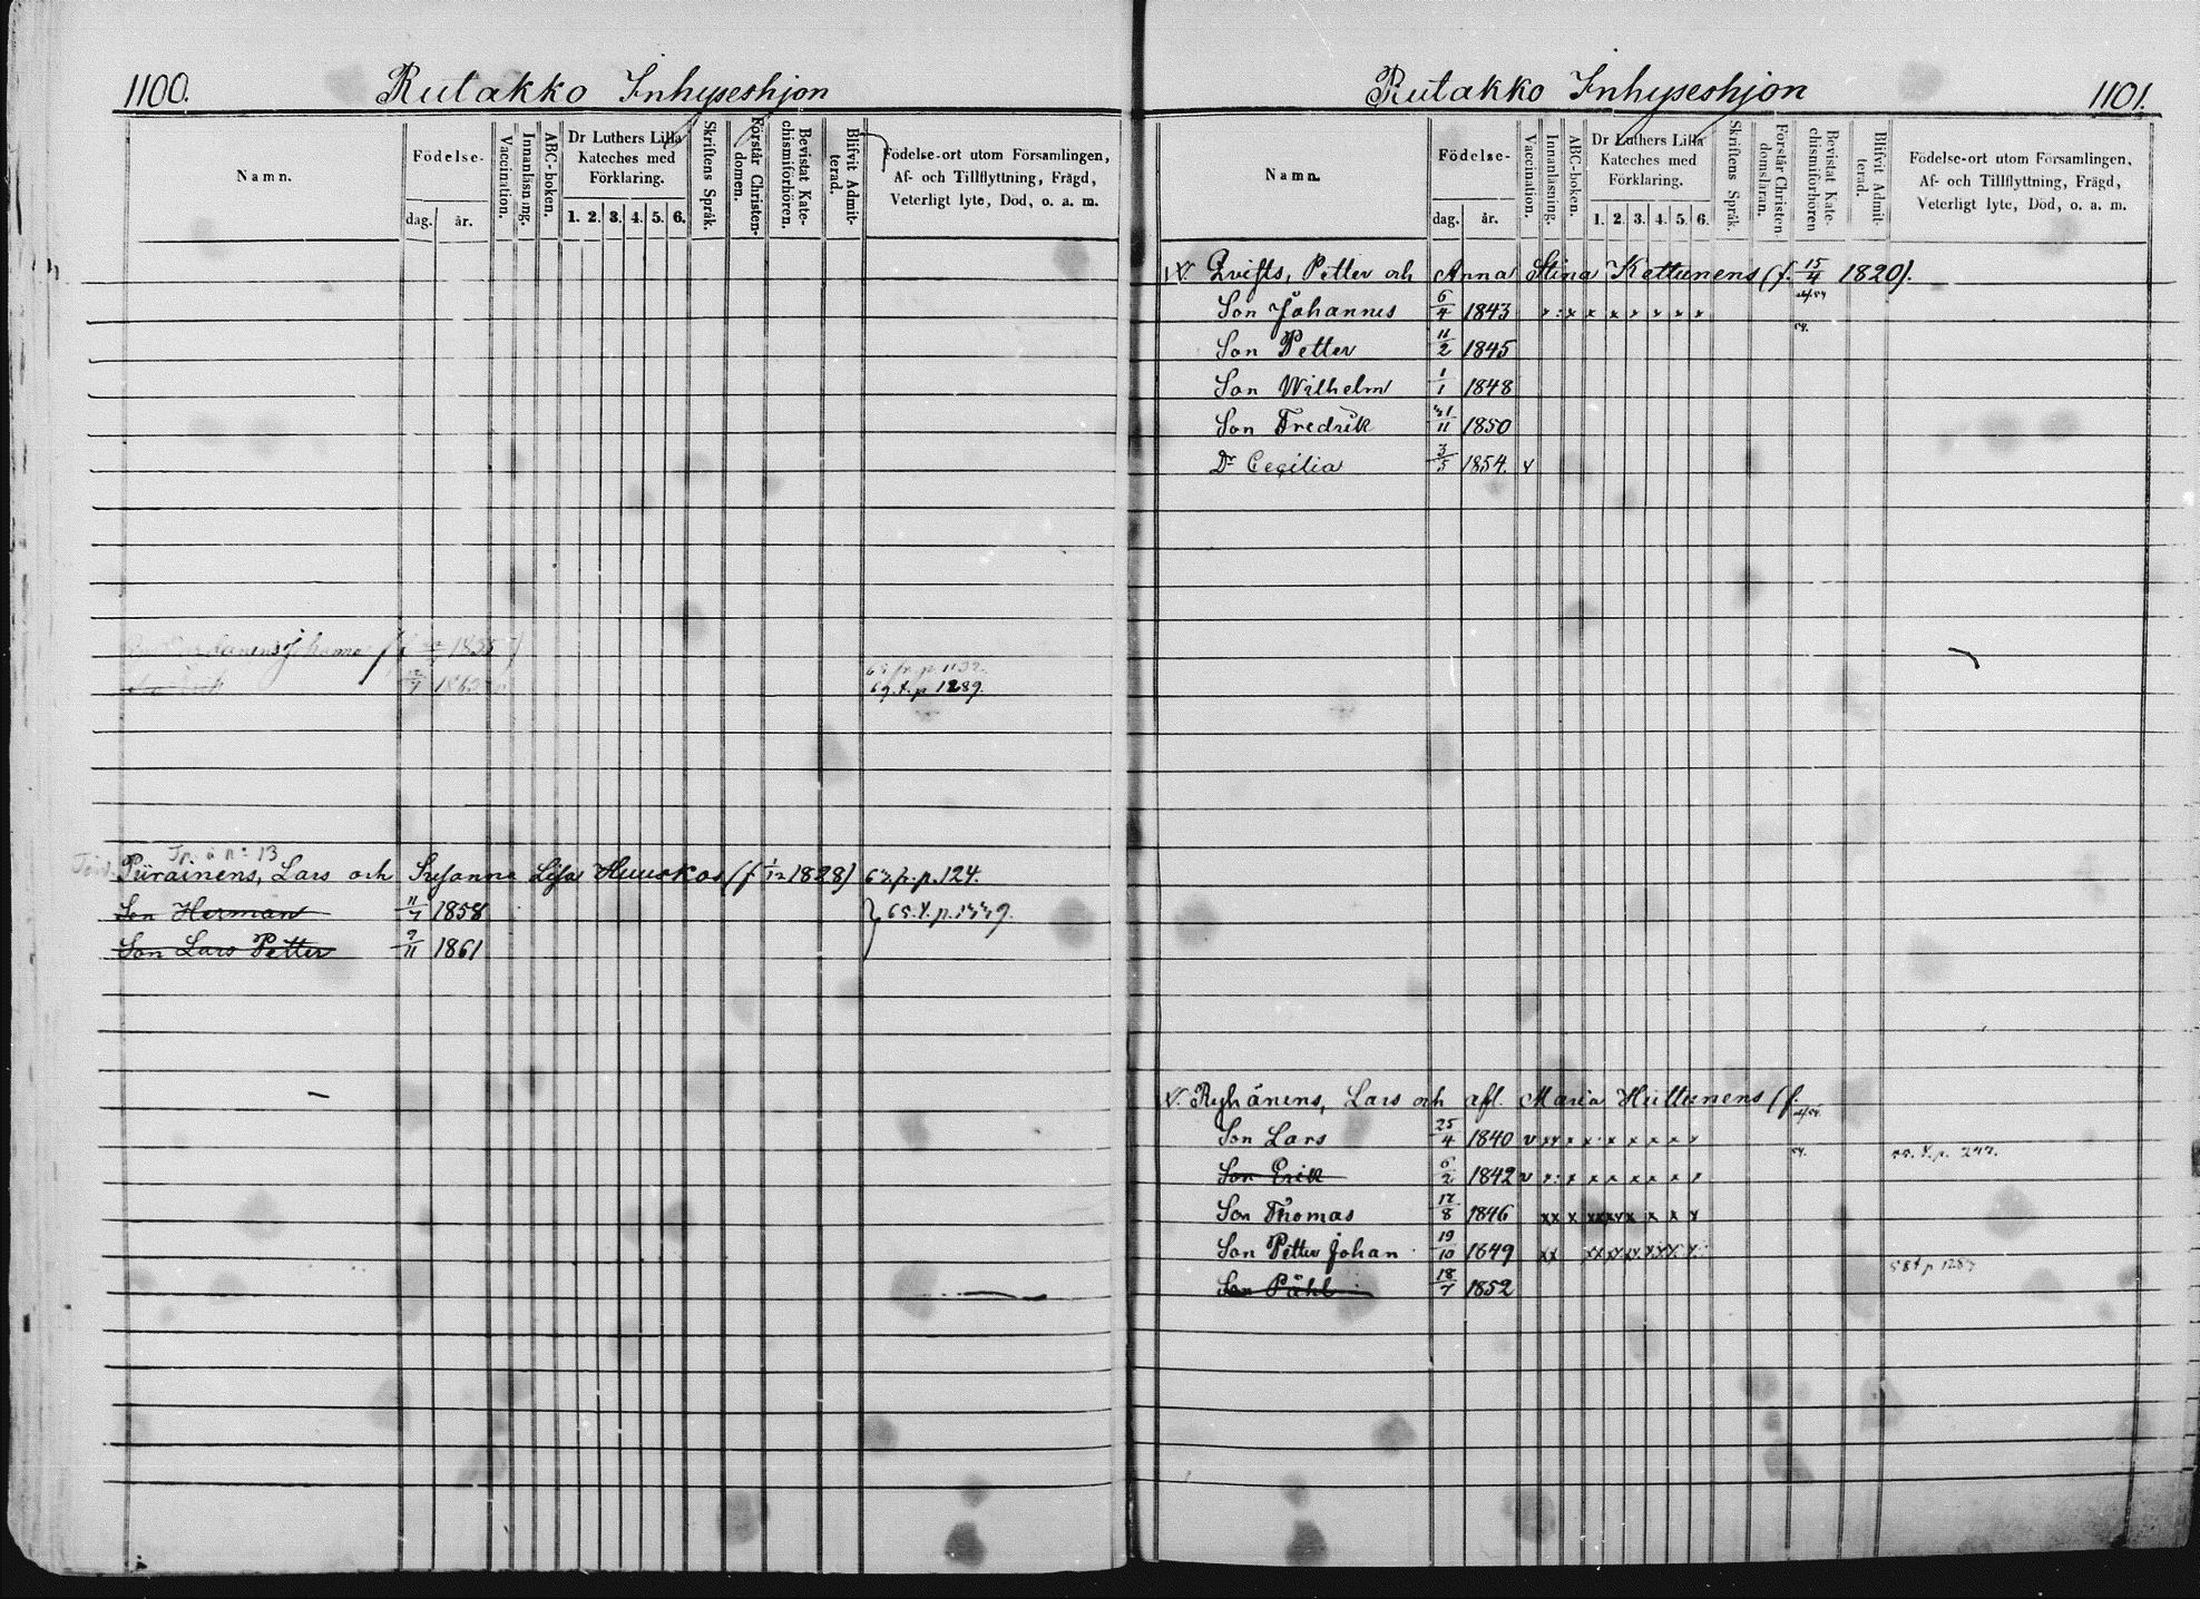 1100. Rutakko Inhyseshjon
Namn.
Födelse-
dag. år.
Vaccination.
Innanläsning.
ABC-boken.
Dr Luthers Lilla
Kateches med
Förklaring.
1. 2. 3. 4. 5. 6.
Skriftens Språk.
Förstår Christen-
domen.
Bevistat Kate-
chismiförhören.
Blifvit Admit-
terad.
Födelse-ort utom Församlingen,
Af- och Tillflyttning, Frägd,
Veterligt lyte, Död, o. a. m.
1855
69 t. p 1289.
Piirainens, Lars och Susanna Lisa Huuskos (f. 1/12 1828) fr. p. 124.
Son Herman 11/7 1858
Son Lars Petter 9/11 1861
Rutakko Inhyseshjon 1101.
Namn.
Födelse-
dag. år.
Vaccination.
Innanläsning.
ABC-boken.
Dr Luthers Lilla
Kateches med
Förklaring.
1. 2. 3. 4. 5. 6.
Skriftens Språk.
Förstår Christen-
domsläran.
Bevistat Kate-
chismiförhören
Blifvit Admit-
terad.
Födelse-ort utom Församlingen,
Af- och Tillflyttning, Frägd,
Veterligt lyte, Död, o. a. m.
Qvists, Petter och Anna Stina Kettunens (f. 15/4 1820).
Son Johannes 6/4 1843
Son Petter 11/2 1845
Son Wilhelm 1/1 1848
Son Fredrik 1850
Dr Cecilia 3/5 1854.
Ryhänens, Lars och afl. Maria Huttunens (f.
Son Lars 25/4 1840
Son Erik 6/2 1842
Son Thomas 17/8 1846
Son Petter Johan 19/10 1849
Son Påhl 18/7 1852